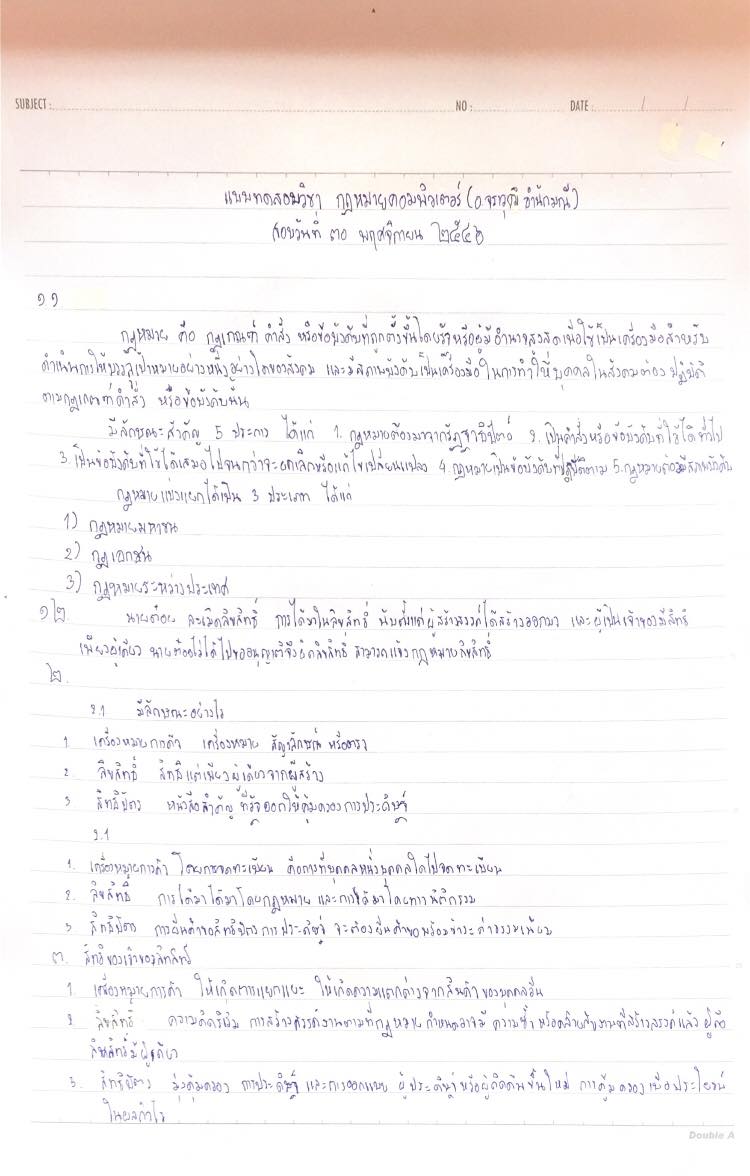 SUBJECT : NO : DATE : / /
แบบทดสอบวิชา กฎหมายคอมพิวเตอร์ (อ.
สอบวันที่ ๓๐ พฤศจิกายน ๒๕๔๖
๑๑
กฎหมาย คือ กฎเกณฑ์ คำสั่ง หรือข้อบังคับที่ถูกตั้งขึ้นโดยรัฐหรือผู้มีอำนาจสูงสุดเพื่อใช้เป็นเครื่องมือสำหรับ
ดำเนินการให้บรรลุเป้าหมายอย่างหนึ่งอย่างใดของสังคม และมีสภาพบังคับเป็นเครื่องมือในการทำให้บุคคลในสังคมต้องปฏิบัติ
ตามกฎเกณฑ์คำสั่ง หรือข้อบังคับนั้น
มีลักษณะสำคัญ 5 ประการ ได้แก่ 1. กฎหมายต้องมาจากรัฏฐาธิปัตย์ 2. เป็นคำสั่งหรือข้อบังคับที่ใช้ได้ทั่วไป
3. เป็นข้อบังคับที่ใช้ได้เสมอไปจนกว่าจะยกเลิกหรือแก้ไขเปลี่ยนแปลง 4. กฎหมายเป็นข้อบังคับที่ปฏิบัติตาม 5. กฎหมายต้องมีสภาพบังคับ
กฎหมายแบ่งแยกได้เป็น 3 ประเภท ได้แก่
1) กฎหมายมหาชน
2) กฎเอกชน
3) กฎหมายระหว่างประเทศ
๑๒. นายต๋อย ละเมิดลิขสิทธิ์ การได้มาในลิขสิทธิ์ นับตั้งแต่ผู้สร้างสรรค์ได้สร้างออกมา และผู้เป็นเจ้าของมีสิทธิ
เพียงผู้เดียว นายต๋อยไม่ได้ไปขออนุญาติจึงผิดลิขสิทธิ์ สามารถแจ้งกฎหมายลิขสิทธิ์
๒.
2.1 มีลักษณะอย่างไร
1 เครื่องหมายการค้า เครื่องหมาย สัญลักษณ์ หรือตรา
2 ลิขสิทธิ์ สิทธิแต่เพียงผู้เดียวจากผู้สร้าง
3 สิทธิบัตร หนังสือสำคัญ ที่รัฐออกให้คุ้มครองการประดิษฐ์
2.1
1. เครื่องหมายการค้า โดยการจดทะเบียน คือการที่บุคคลหนึ่งบุคคลใดไปจดทะเบียน
2. ลิขสิทธิ์ การได้มาได้มาโดยกฎหมาย และการได้มาโดยทางนิติกรรม
3 สิทธิบัตร การยื่นคำขอสิทธิบัตรการประดิษฐ์ จะต้องยื่นคำขอพร้อมชำระค่าธรรมเนียม
๓. สิทธิของเจ้าของสิทธิ์
1. เครื่องหมายการค้า ให้เกิดการแยกแยะ ให้เกิดความแตกต่างจากสินค้าของบุคคลอื่น
2 ลิขสิทธิ์ ความคิดริเริ่ม การสร้างสรรค์งานตามที่กฎหมาย กำหนดอาจมี ความซ้ำ หรือคล้ายกับงานที่สร้างสรรค์แล้ว ผู้ถือ
ลิขสิทธิ์มีผู้เดียว
3. สิทธิบัตร มุ่งคุ้มครอง การประดิษฐ์ และการออกแบบ ผู้ประดิษฐ์หรือผู้คิดค้นขึ้นใหม่ การคุ้มครองเพื่อประโยชน์
ในผลกำไร
Double A